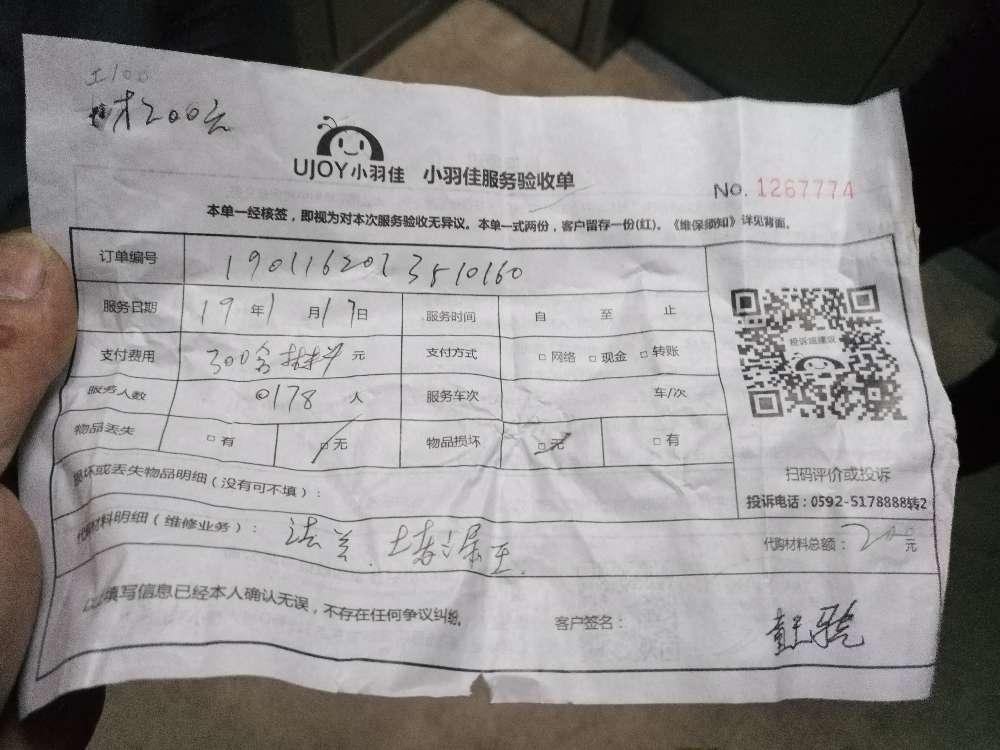 工100
材200元
UJOY小羽佳 小羽佳服务验收单
No. 1267774
本单一经核签，即视为对本次服务验收无异议。本单一式两份，客户留存一份(红)。《维保须知》详见背面。
订单编号 1901162013510160
服务日期 19年1月17日 服务时间 自 至 止
支付费用 300含材料元 支付方式 □网络 □现金 □转账
服务人数 0178人 服务车次 车/次
物品丢失 □有 □无 物品损坏 □无 □有
投诉或建议
损坏或丢失物品明细（没有可不填）：
扫码评价或投诉
投诉电话：0592-5178888转2
代购材料明细（维修业务）：法兰.
代购材料总额：200元
以上填写信息已经本人确认无误，不存在任何争议纠纷。
客户签名：